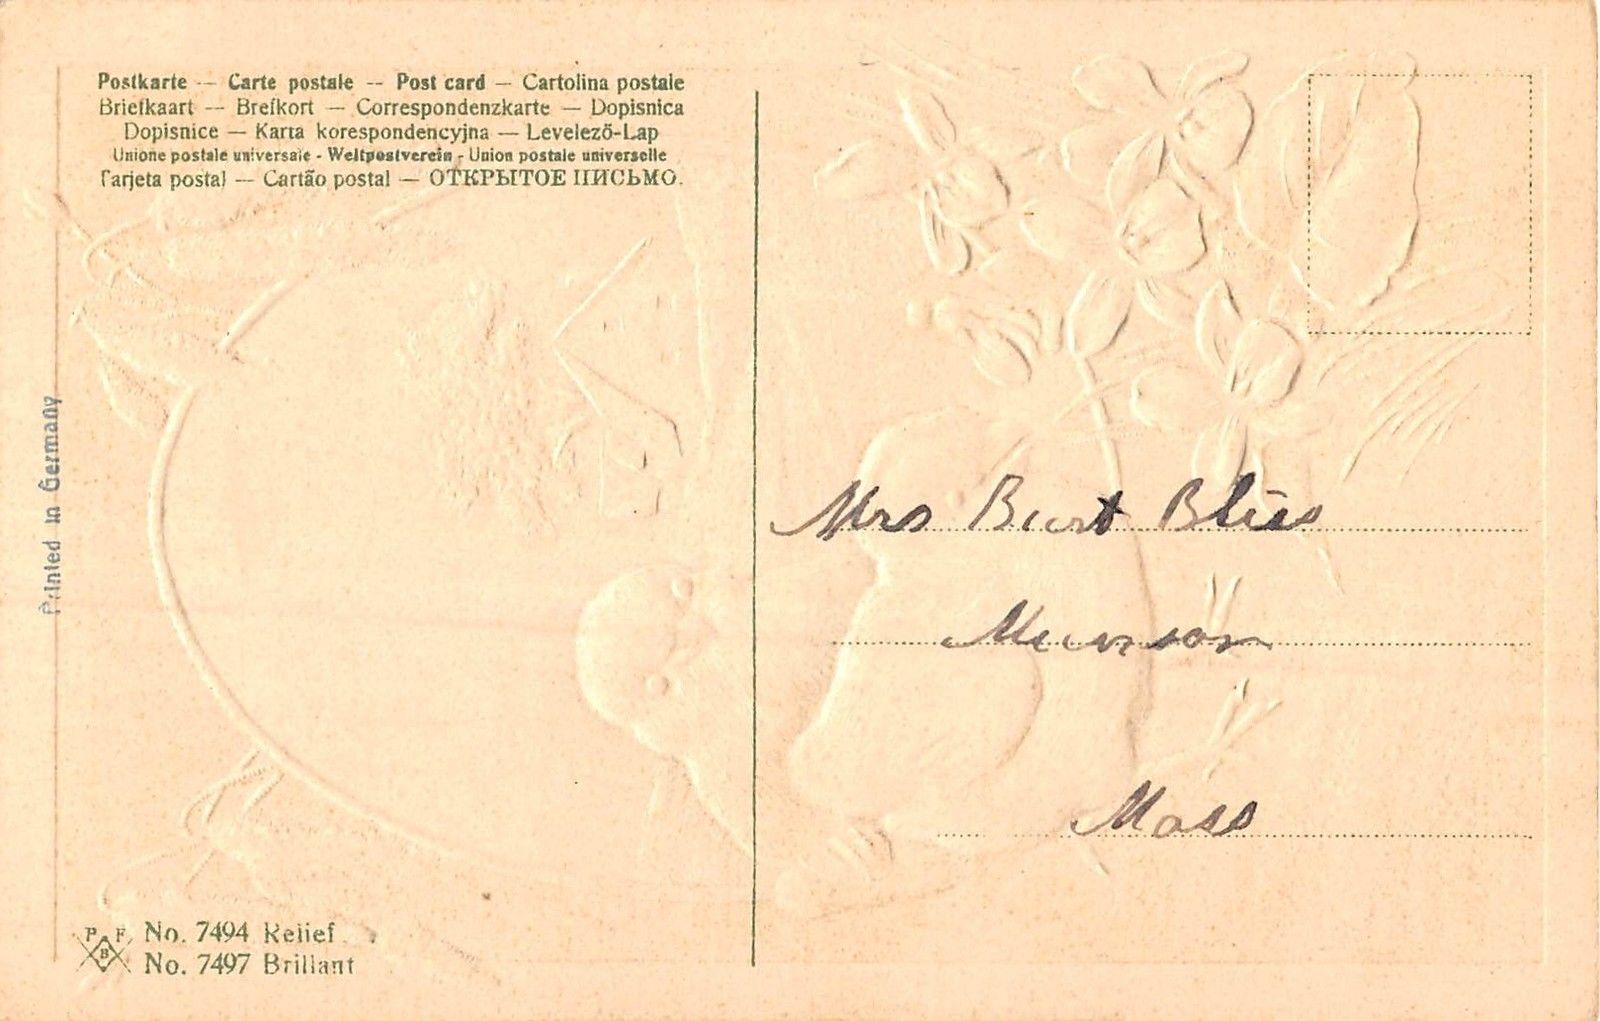 Postkarte — Carte postale -- Post card — Cartolina postale
Briefkaart -- Brefkort — Correspondenzkarte — Dopisnica
Dopisnice — Karta korespondencyjna — Levelező-Lap
Unione postale universale - Weltpostverein - Union postale universelle
Tarjeta postal — Cartão postal — ОТКРЫТОЕ ПИСЬМО.
Printed in Germany
Mrs Burt Bliss
Munson
Mass
P F B
No. 7494 Relief
No. 7497 Brillant